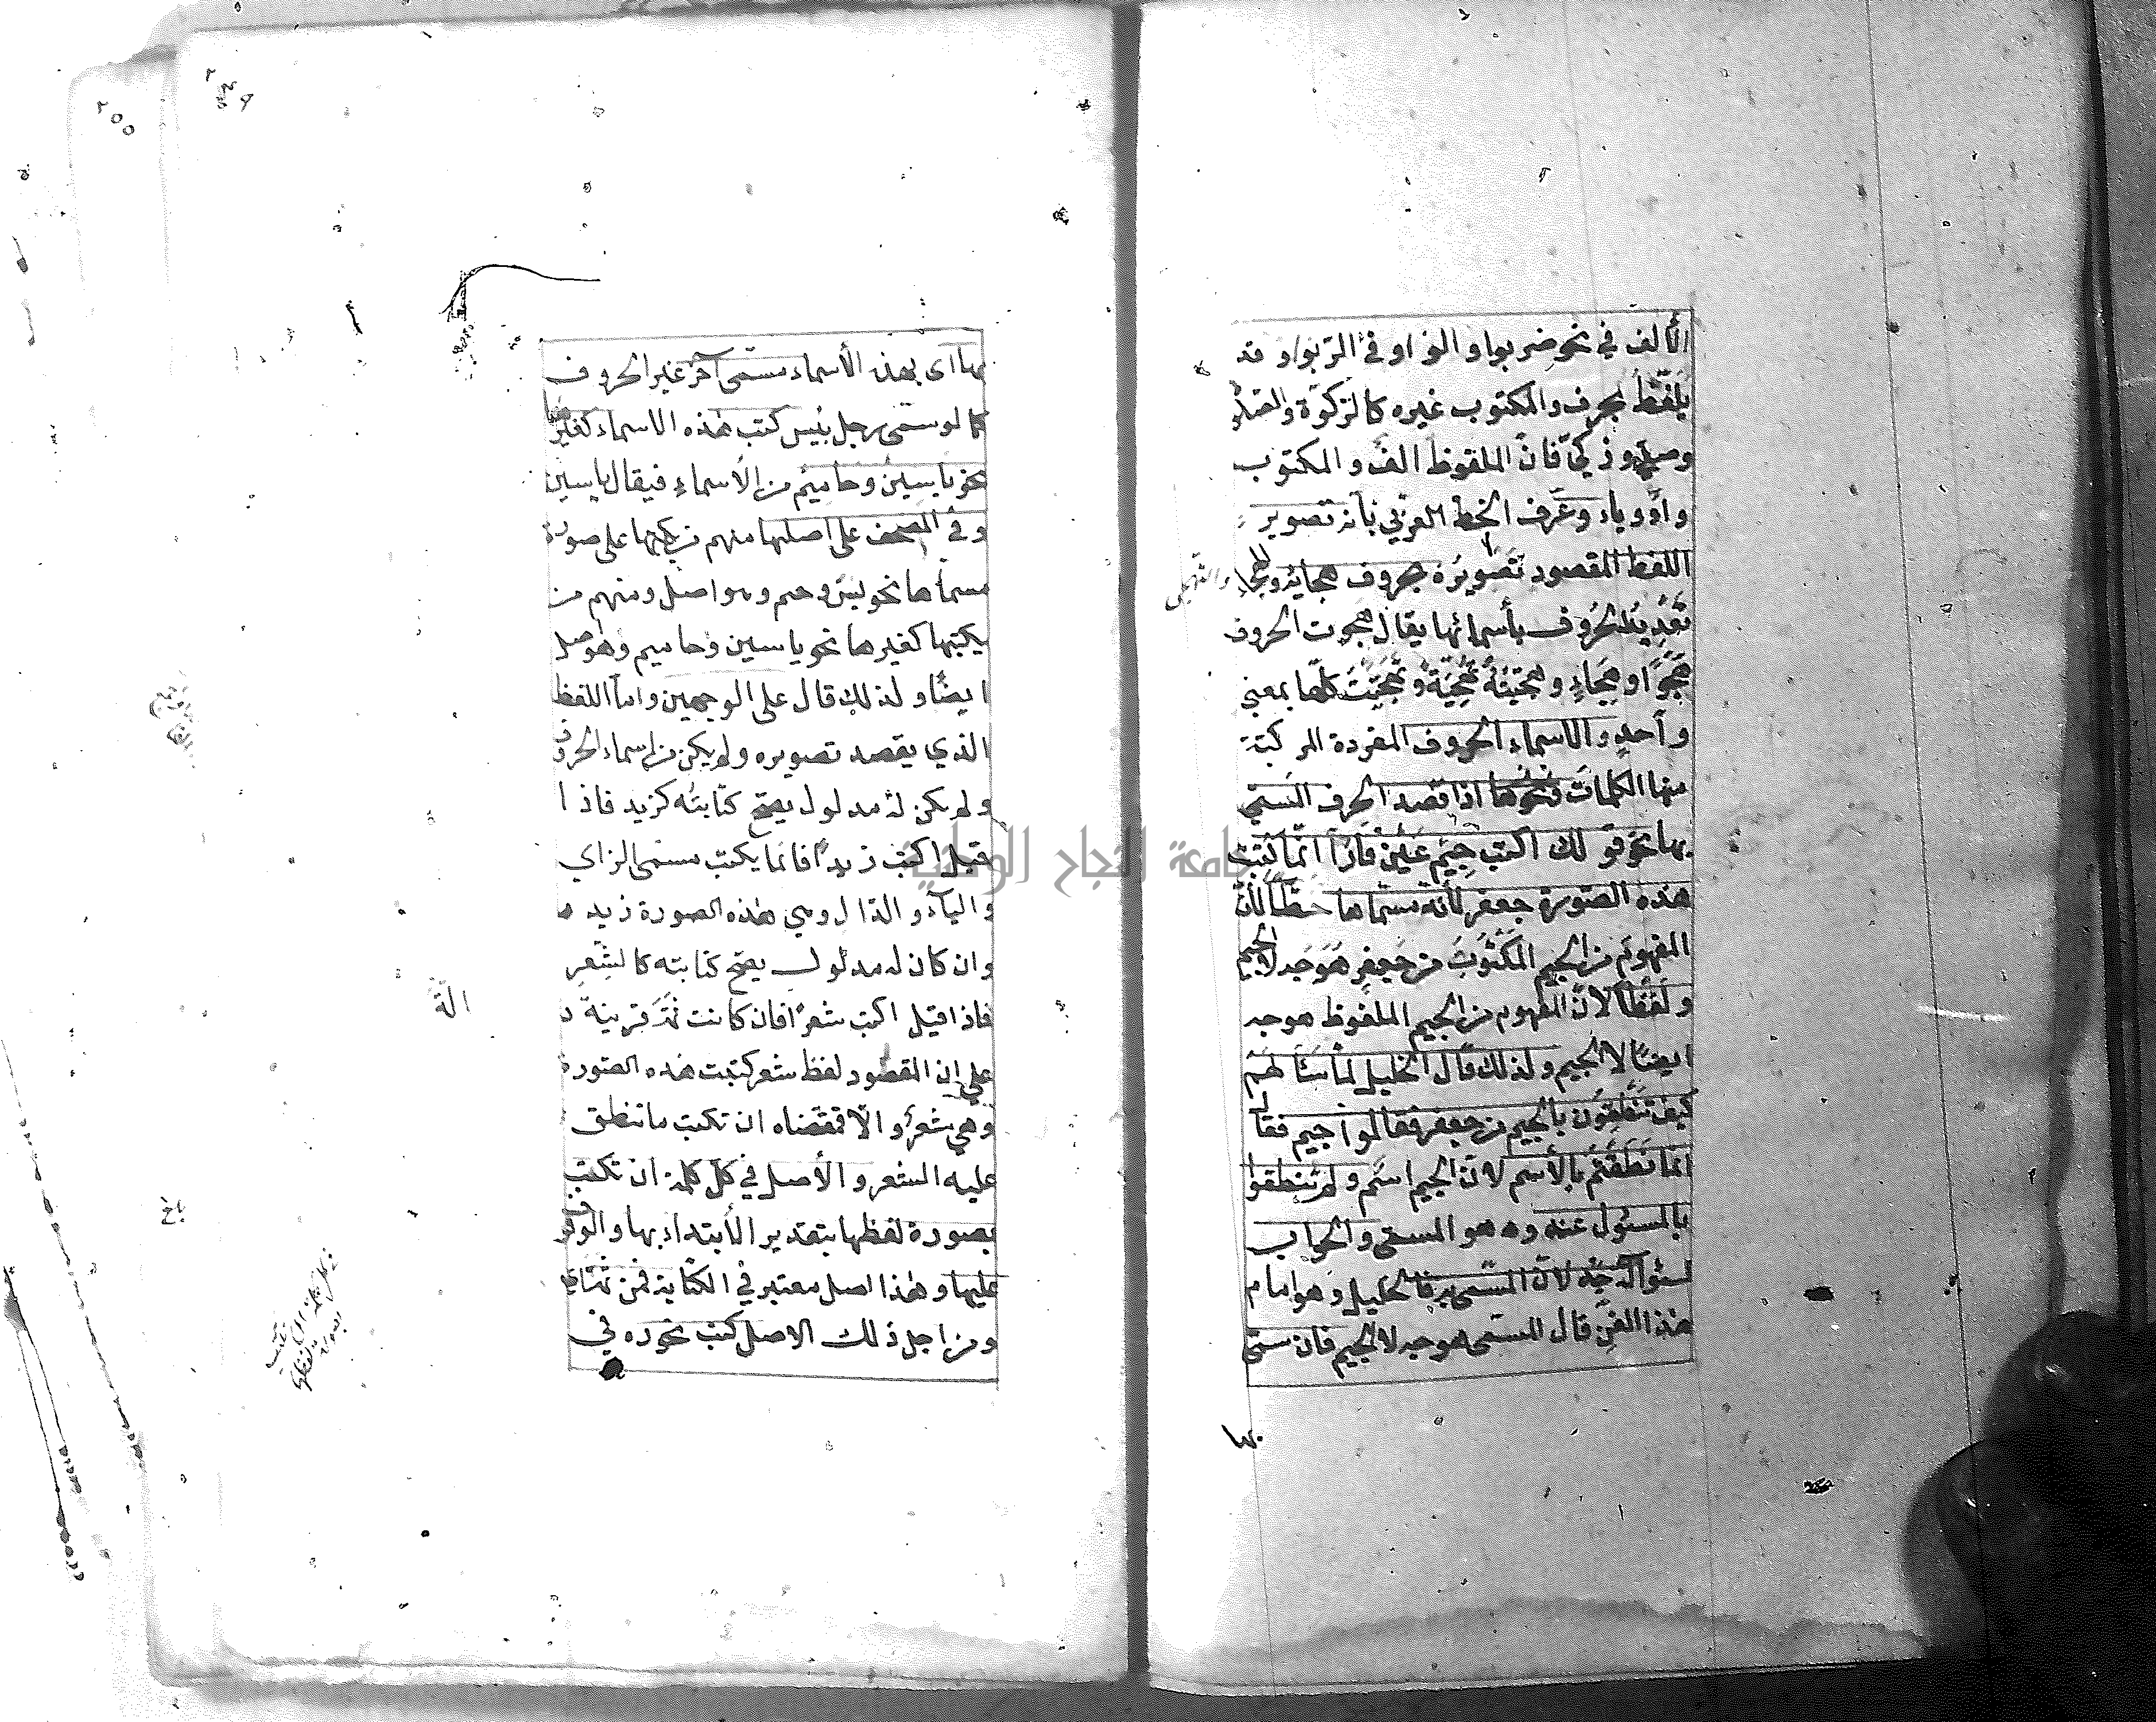 الألف في نحو ضربوا والواو في الربوا وقد
يلفظ بحرف والمكتوب غيره كالزكوة والصلوة
وصلى وزكى فان الملفوظ الف والمكتوب
واو وياء وعرف الخط العربي بانه تصوير
اللفظ المقصود تصويره بحروف هجائه والهجاء
والتهجي
تعديد الحروف بأسمائها يقال هجوت الحروف
هجوا وهجاء وهجيته تهجية وتهجيت كلها بمعنى
واحد والاسماء الحروف المفردة المركبة
منها الكلمات ونحوها اذا قصد الحرف المسمى
بها نحو قولك اكتب جيم عين فا را انما تكتب
هذه الصورة جعفر لأنه مسماها خطا لأن
المفهوم من الجيم المكتوب من جعفر هو جه لا الجيم
ولفظا لان المفهوم من الجيم الملفوظ هو جه
ايضا لا الجيم ولذلك قال الخليل لما سألهم
كيف تنطقون بالجيم من جعفر فقالوا جيم فقال
انما نطقتم بالأسم لان الجيم اسم ولم تنطقوا
بالمسئول عنه وهو المسمى والجواب
لسؤاله جه لان المسمى به فالخليل وهو امام
هذا الفن قال المسمى هو جه لا الجيم فان سمى
بها
٢٤٩
٢٥٥
بها اى بهذه الأسماء مسمى آخر غير الحروف
كما لو سمى رجل بيس كتب هذه الاسماء كغيرها
نحو ياسين وحاميم من الأسماء فيقال ياسين
وفي المصحف على اصلها منهم من يكتبها على صورة
مسماها نحو يس وحم وهو اصل ومنهم من
يكتبها كغيرها نحو ياسين وحاميم وهو اصل
ايضا ولذلك قال على الوجهين واما اللفظ
الذي يقصد تصويره ولم يكن من اسماء الحروف
ولم يكن له مدلول يصح كتابته كزيد فاذا
قيل اكتب زيدا فانما يكتب مسمى الزاي
والياء والدال وهي هذه الصورة زيد
وان كان له مدلول يصح كتابته كالشعر
فاذا قيل اكتب شعرا فان كانت ثمة قرينة
على ان المقصود لفظ شعر كتبت هذه الصورة
وهي شعر والا فمقتضاه ان تكتب ما تنطق
عليه الشعر والأصل في كل كلمة ان تكتب
بصورة لفظها بتقدير الأبتداء بها والوقف
عليها وهذا اصل معتبر في الكتابة فمن ثمة
ومن اجل ذلك الاصل كتب نحو ره في
جامعة النجاح الوطنية